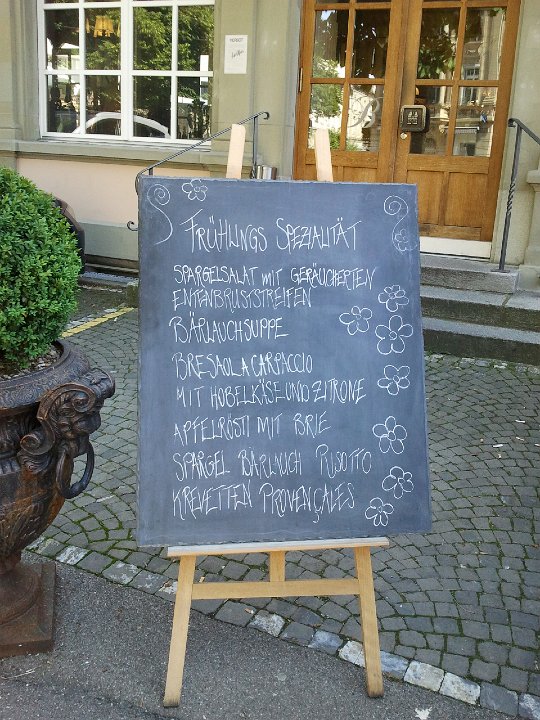 FRÜHLINGS SPEZIALITÄT
SPARGELSALAT MIT GERÄUCHERTEN
ENTENBRUSTSTREIFEN
BÄRLAUCHSUPPE
BRESAOLA CARPACCIO
MIT HOBELKÄSE UND ZITRONE
APFELRÖSTI MIT BRIE
SPARGEL BÄRLAUCH RISOTTO
KREVETTEN PROVENÇALES